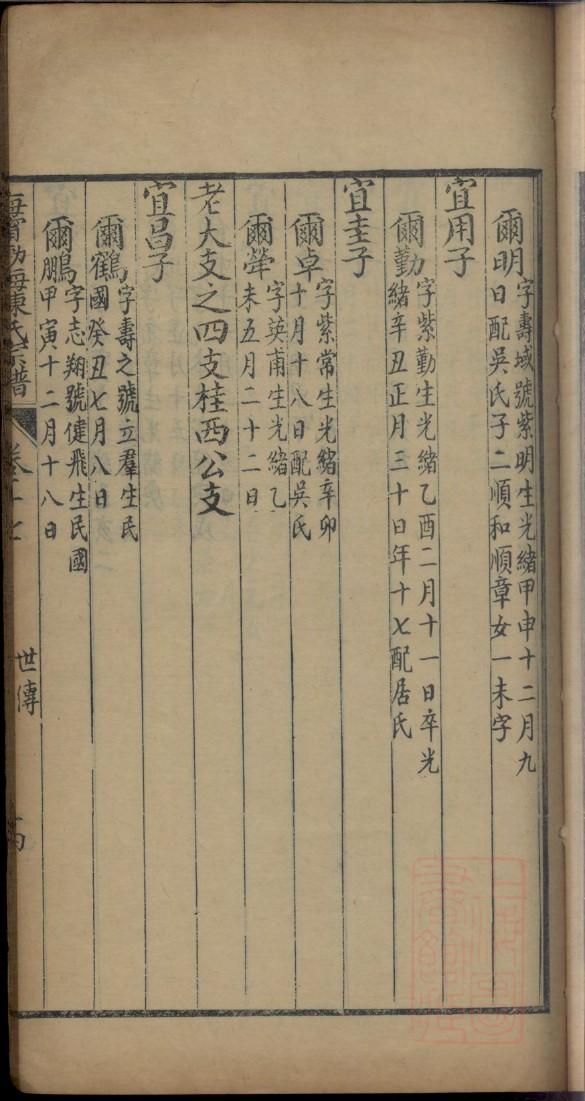 爾明字壽域號紫明生光緒甲申十二月九
日配吳氏子二順和順章女一未字
宜用子
爾勤字紫勤生光緒乙酉二月十一日卒光
緒辛丑正月三十日年十七配居氏
宜圭子
爾卓字紫常生光緒辛卯
十月十八日配吳氏
爾犖字英甫生光緒乙
未五月二十二日
老大支之四支桂西公支
宜昌子
爾鶴字壽之號立羣生民
國癸丑七月八日
爾鵬字志翔號健飛生民國
甲寅十二月十八日
氏宗譜
世傳